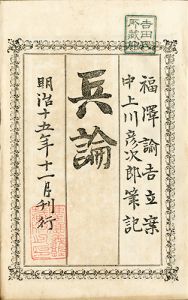 福澤諭吉立案
中上川彦次郎筆記
兵論
明治十五年十一月刊行